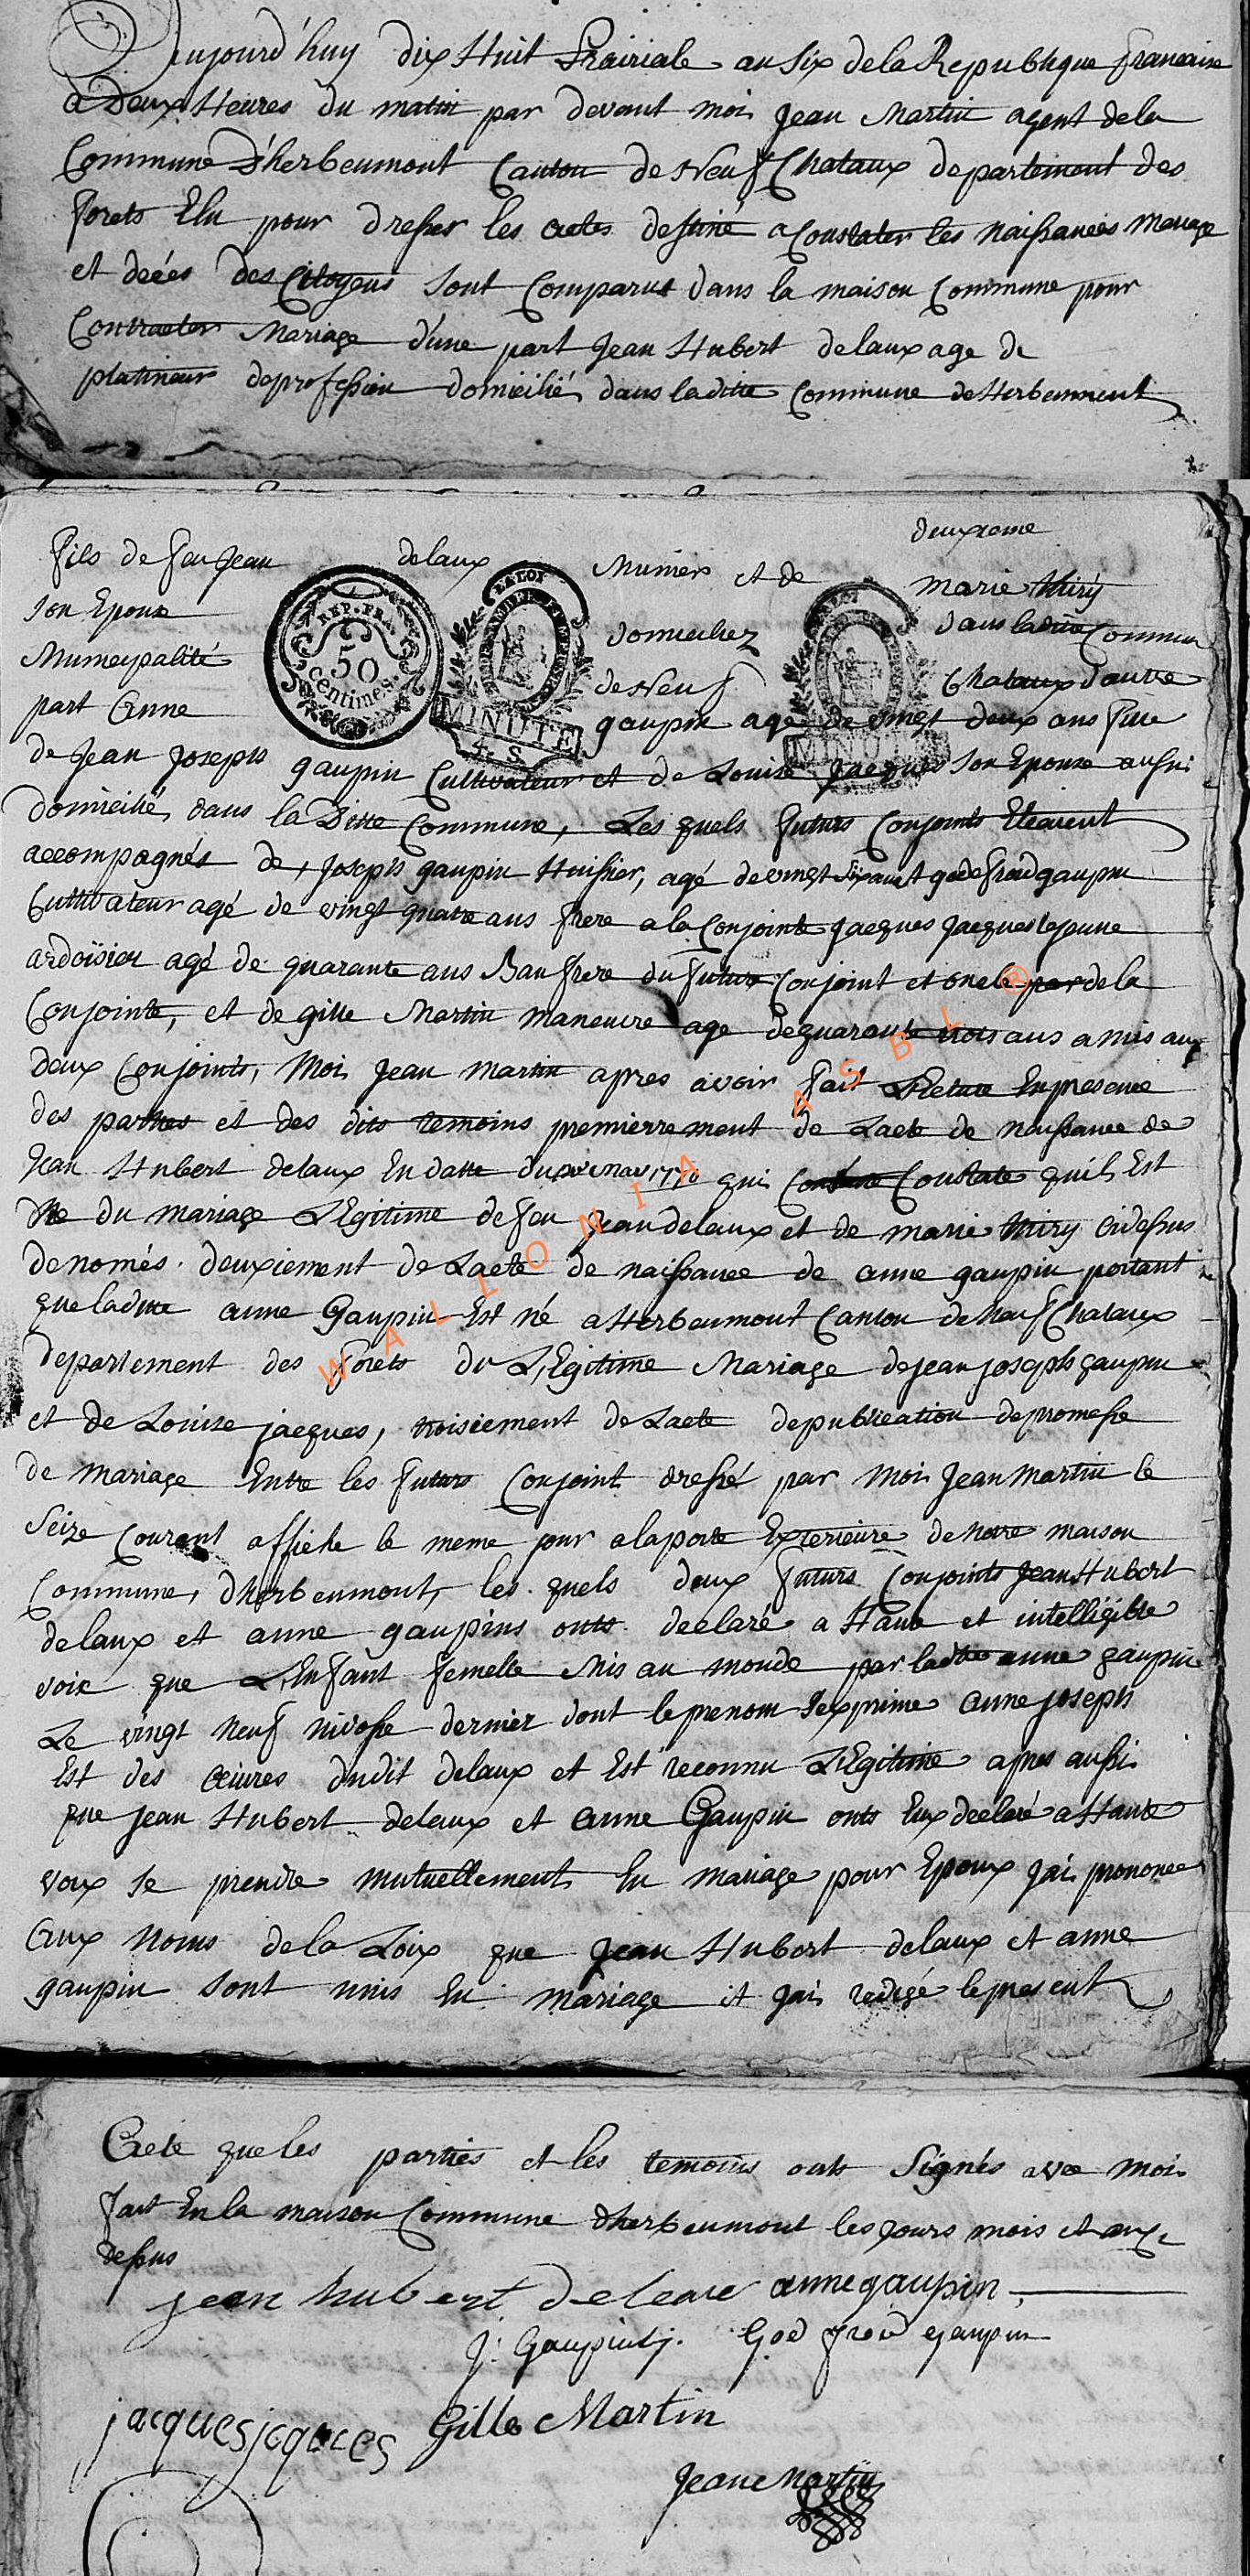 Aujourd'huy dix Huit Prairiale an Six de la Republique francaise
a Deux Heures du matin par devant moi Jean Martin agent dela
Commune D'herbeumont Canton de Neuf Chataux departement des
forets Elu pour dresser les actes destiné a Constater les naissances Mariage
et decés des Citoyens sont Comparut dans la maison Commune pour
Contracter Mariage d'une part Jean Hubert delaux age de
platineur deprofession domicilié dans laditte Commune de Herbeumont
deuxieme
fils de feu Jean delaux Munier et de marie thiry
son Epouse domiciliez dans laditte Commun
Municypalité de Neuf Chataux dautre
part Anne gaupin age de vingt deux ans fille
REP. FRA.
50
centimes.
LA LOI
MINUTE
4. S.
MINUTE
de Jean Joseph gaupin Cultivateur et de Louise Jacques son Epouse aussi
domicilié dans la Ditte Commune, Les quels futurs Conjoints Etaient
accompagnés de, Joseph gaupin Huissier, agé de vingt six ans et godefroid gaupin
Cultivateur agé de vingt quatre ans frere a la Conjointe Jacques Jacques lejeune
ardoisier agé de quarante ans Baufrere du futur Conjoint et oncle par de la
Conjointe, et de gille Martin maneuvre age de quarante trois ans amis aux
deux Conjoints, Moi Jean martin apres avoir fait LEcture En presence
des parties et des dits temoins premierrement de Lacte de naissance de
Jean Hubert delaux En datte du mars 1770 qui Constate quil Est
Né du mariage LEgitime de feu Jean delaux et de marie thiry cidessus
denomés. deuxiement de Lacte de naissance de anne gaupin portant
que laditte anne Gaupin Est né a Herbeumont Canton de Neuf Chataux
departement des forets du LEgitime Mariage de jean joseph gaupin
et de Louise jacques, troisiement de Lacte depublication depromesse
de mariage Entre les futurs Conjoint dressé par moi Jean Martin le
Seize Courant affiche le meme jour a laporte Exterieure de Notre maison
Commune, dherbeumont, les quels deux futurs Conjoints Jean Hubert
delaux et anne gaupins onts declaré a Haute et intelligible
voix que LEnfant femelle Mis au monde par ladtte anne gaupin
Le vingt Neuf nivosse dernier dont le prenom Sexprime anne joseph
Est des œuvres dudit delaux et Est reconnu LEgitime apres aussi
que jean Hubert delaux et anne Gaupin onts Eux declaré a Haute
voix se prendre mutuellement En mariage pour Epoux Jai prononce
aux Noms de la Loix que Jean Hubert delaux et anne
gaupin sont unis En mariage et Jai redigé lepresent
Acte queles parties et les temoins onts Signés avec moi
fait En la maison Commune dherbeumont les jours mois et an
dessus
jean hubert deleau anne gaupin
J: Gaupin God froid gaupin
jacques jacques Gille Martin
Jean Martin
WALLONIA ASBL ®